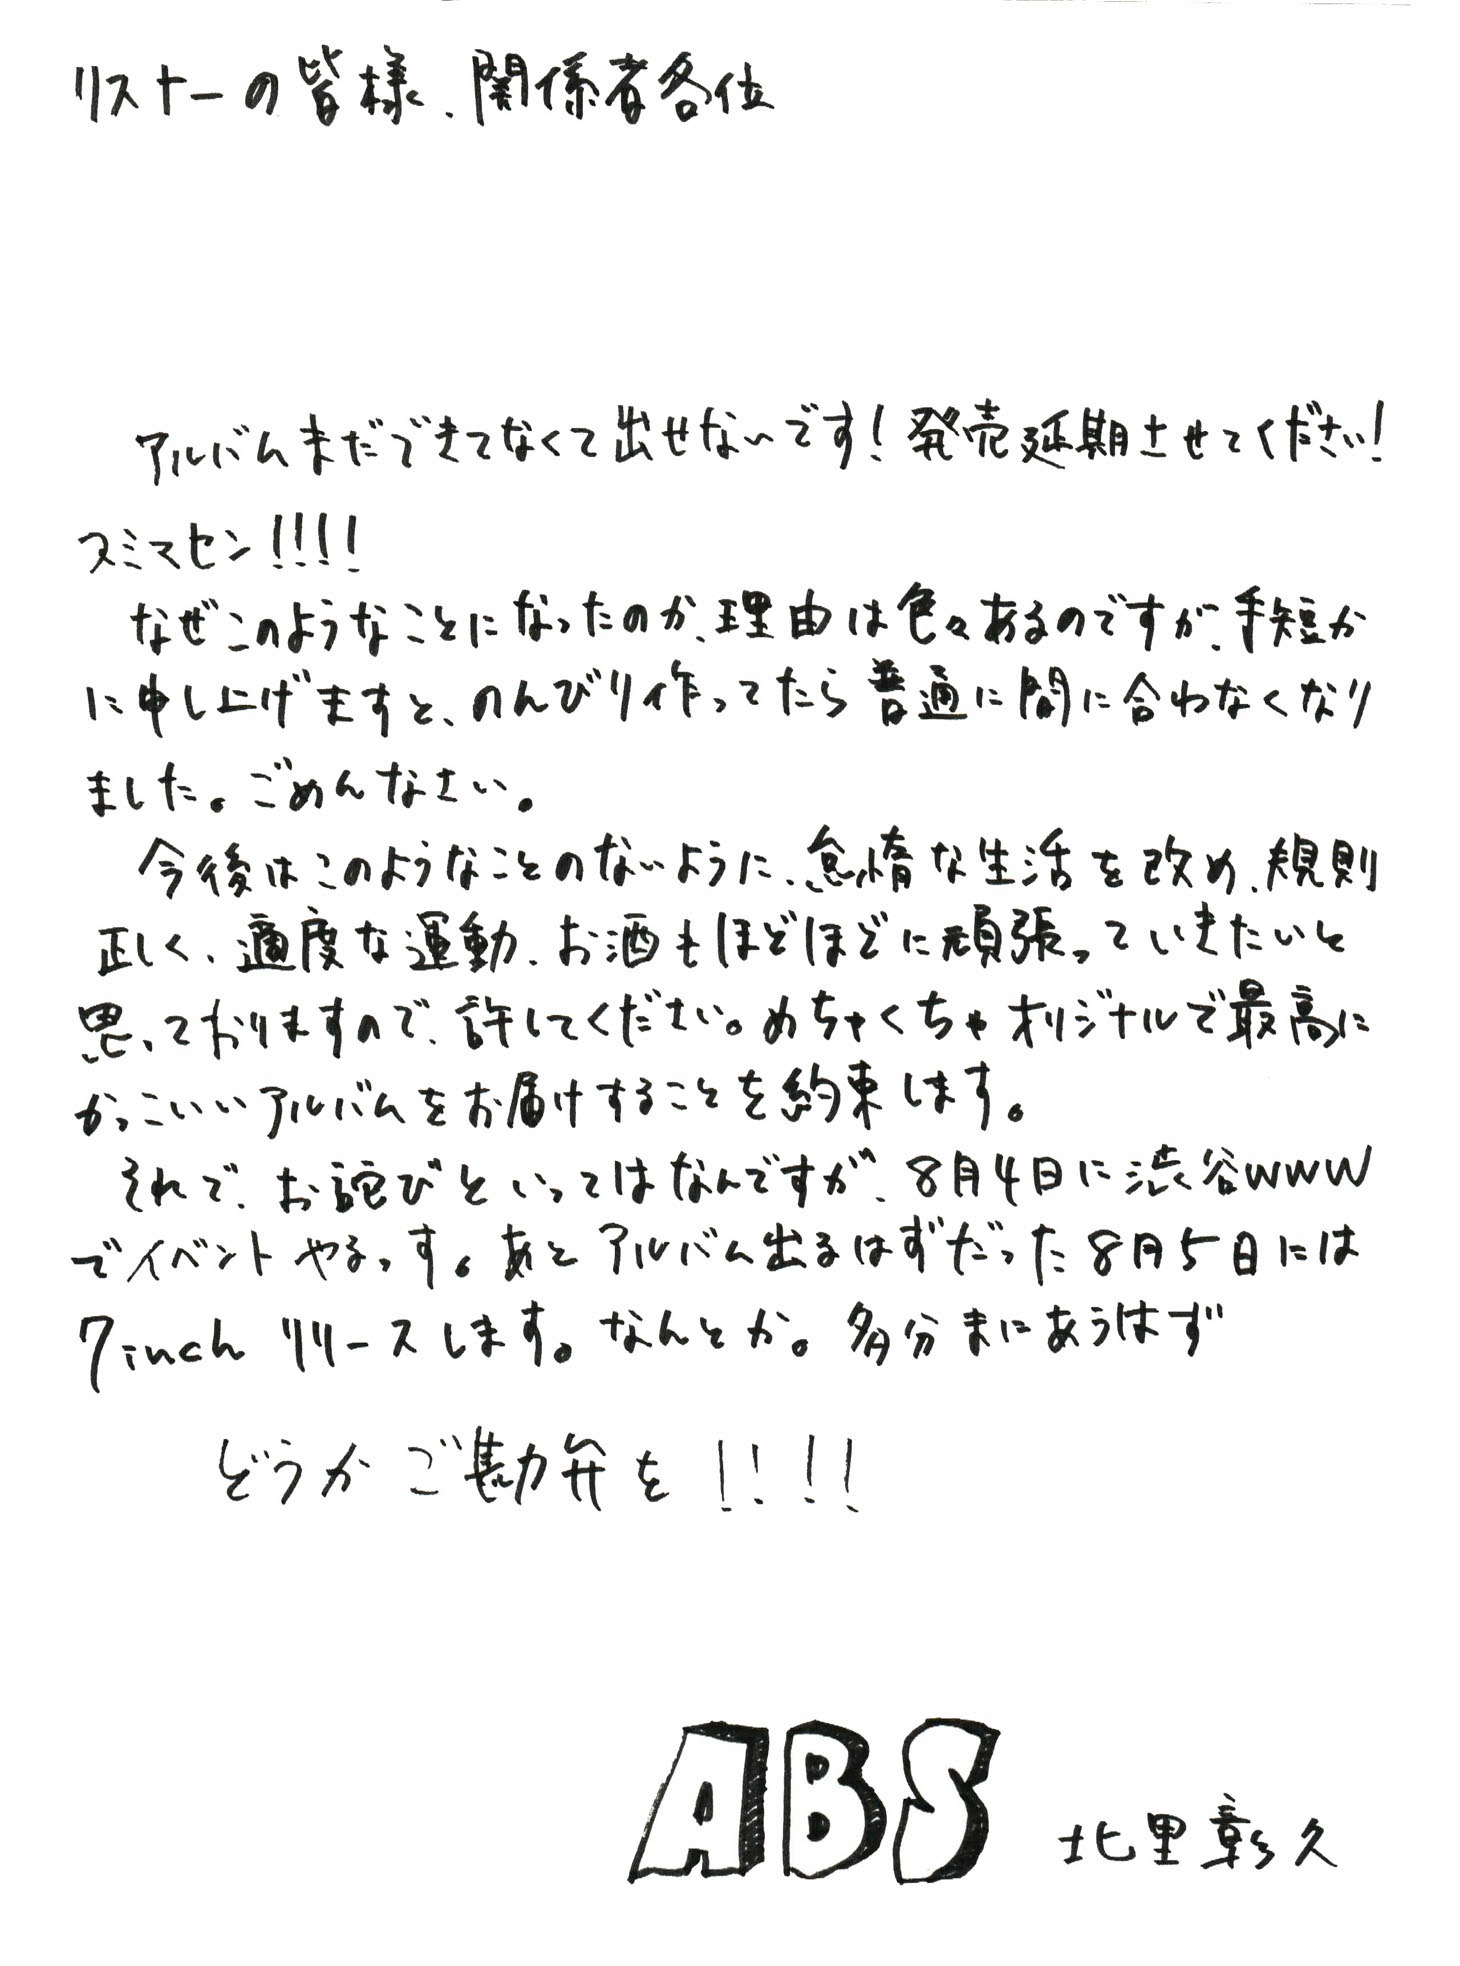 リスナーの皆様、関係者各位
アルバムまだできてなくて出せないです!発売延期させてください!
スミマセン!!!!
なぜこのようなことになったのか、理由は色々あるのですが、手短か
に申し上げますと、のんびり作ってたら普通に間に合わなくなり
ました。ごめんなさい。
今後はこのようなことのないように、怠惰な生活を改め、規則
正しく、適度な運動、お酒もほどほどに頑張っていきたいと
思っておりますので、許してください。めちゃくちゃオリジナルで最高に
かっこいいアルバムをお届けすることを約束します。
それで、お詫びといってはなんですが、8月4日に渋谷WWW
でイベントやるっす。あとアルバム出るはずだった8月5日には
7inchリリースします。なんとか。多分まにあうはず
どうかご勘弁を!!!!
ABS 北里彰久